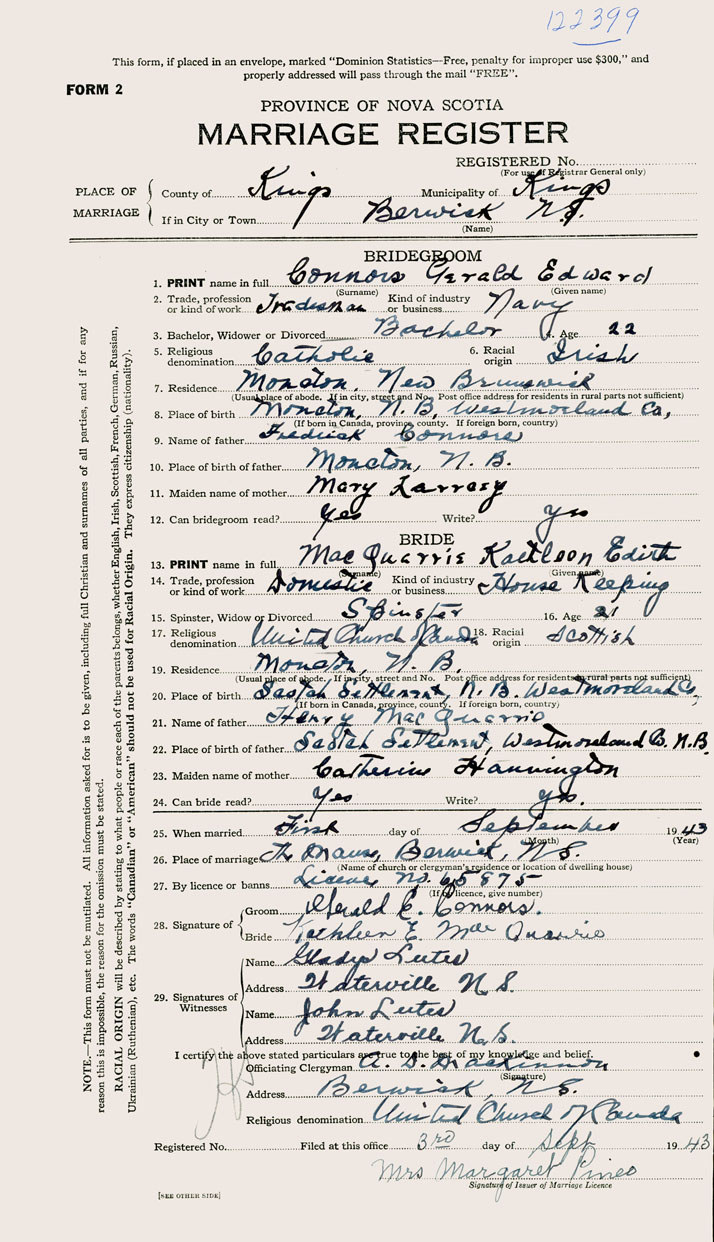 122399
This form, if placed in an envelope, marked "Dominion Statistics—Free, penalty for improper use $300," and
properly addressed will pass through the mail "FREE".
FORM 2
PROVINCE OF NOVA SCOTIA
MARRIAGE REGISTER
REGISTERED No.
(For use of Registrar General only)
PLACE OF MARRIAGE
County of Kings Municipality of Kings
If in City or Town Berwick N.S.
(Name)
BRIDEGROOM
1. PRINT name in full Connors Gerald Edward
(Surname) (Given name)
2. Trade, profession or kind of work Tradesman Kind of industry or business Navy
3. Bachelor, Widower or Divorced Bachelor 4. Age 22
5. Religious denomination Catholic 6. Racial origin Irish
7. Residence Moncton, New Brunswick
(Usual place of abode. If in city, street and No. Post office address for residents in rural parts not sufficient)
8. Place of birth Moncton, N.B, Westmorland Co,
(If born in Canada, province, county. If foreign born, country)
9. Name of father Fredrick Connors
10. Place of birth of father Moncton, N.B.
11. Maiden name of mother Mary
12. Can bridegroom read? Yes Write? Yes
BRIDE
13. PRINT name in full Mac Quarrie Kathleen Edith
(Surname) (Given name)
14. Trade, profession or kind of work Domestic Kind of industry or business House Keeping
15. Spinster, Widow or Divorced Spinster 16. Age 21
17. Religious denomination United Church of Canada 18. Racial origin Scottish
19. Residence Moncton, N.B.
(Usual place of abode. If in city, street and No. Post office address for residents in rural parts not sufficient)
20. Place of birth Settlement, N.B. Westmoreland Co,
(If born in Canada, province, county. If foreign born, country)
21. Name of father Henry Mac Quarrie
22. Place of birth of father Settlement, Westmoreland Co. N.B.
23. Maiden name of mother Catherine Hannington
24. Can bride read? Yes Write? Yes.
25. When married First day of September 1943
(Month) (Year)
26. Place of marriage The Manse, Berwick, N.S.
(Name of church or clergyman's residence or location of dwelling house)
27. By licence or banns License No. 65875
(If by licence, give number)
28. Signature of
Groom Gerald E. Connors.
Bride Kathleen E. Mac Quarrie
29. Signatures of Witnesses
Name Gladys Lutes
Address Waterville N.S.
Name John Lutes
Address Waterville N.S.
I certify the above stated particulars are true to the best of my knowledge and belief.
Officiating Clergyman A. D. Mackinnon
(Signature)
Address Berwick, N.S.
Religious denomination United Church of Canada
Registered No. Filed at this office 3rd day of Sept 1943
Mrs Margaret Pineo
Signature of Issuer of Marriage Licence
[SEE OTHER SIDE]
NOTE.—This form must not be mutilated. All information asked for is to be given, including full Christian and surnames of all parties, and if for any
reason this is impossible, the reason for the omission must be stated.
RACIAL ORIGIN will be described by stating to what people or race each of the parents belongs, whether English, Irish, Scottish, French, German, Russian,
Ukrainian (Ruthenian), etc. The words "Canadian" or "American" should not be used for Racial Origin. They express citizenship (nationality).